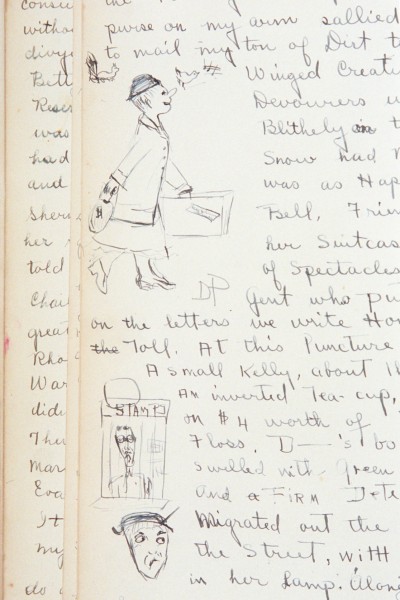 the
purse on my arm sallied
to mail my ton of Dirt t
Winged Creati
Devourers u
Blithely in t
Snow had
was as Hap
Bell, Frien
her Suitcas
of Spectacles
DP
Gent who pu
on the letters we write Hon
the Toll. At this Puncture
A small Kelly, about
An inverted Tea-cup,
on $4 worth of
Floss. D—'s bo
Swelled with Green
and a FIRM Dete
Migrated out the
the Street, with
in her Lamp. Along
STAMP
$
consi
witho
divi
Bett
Rese
was
had
and
Sher
her
told
Chai
great
Rho
War
didn
Thu
Mar
Eva
It
my
do